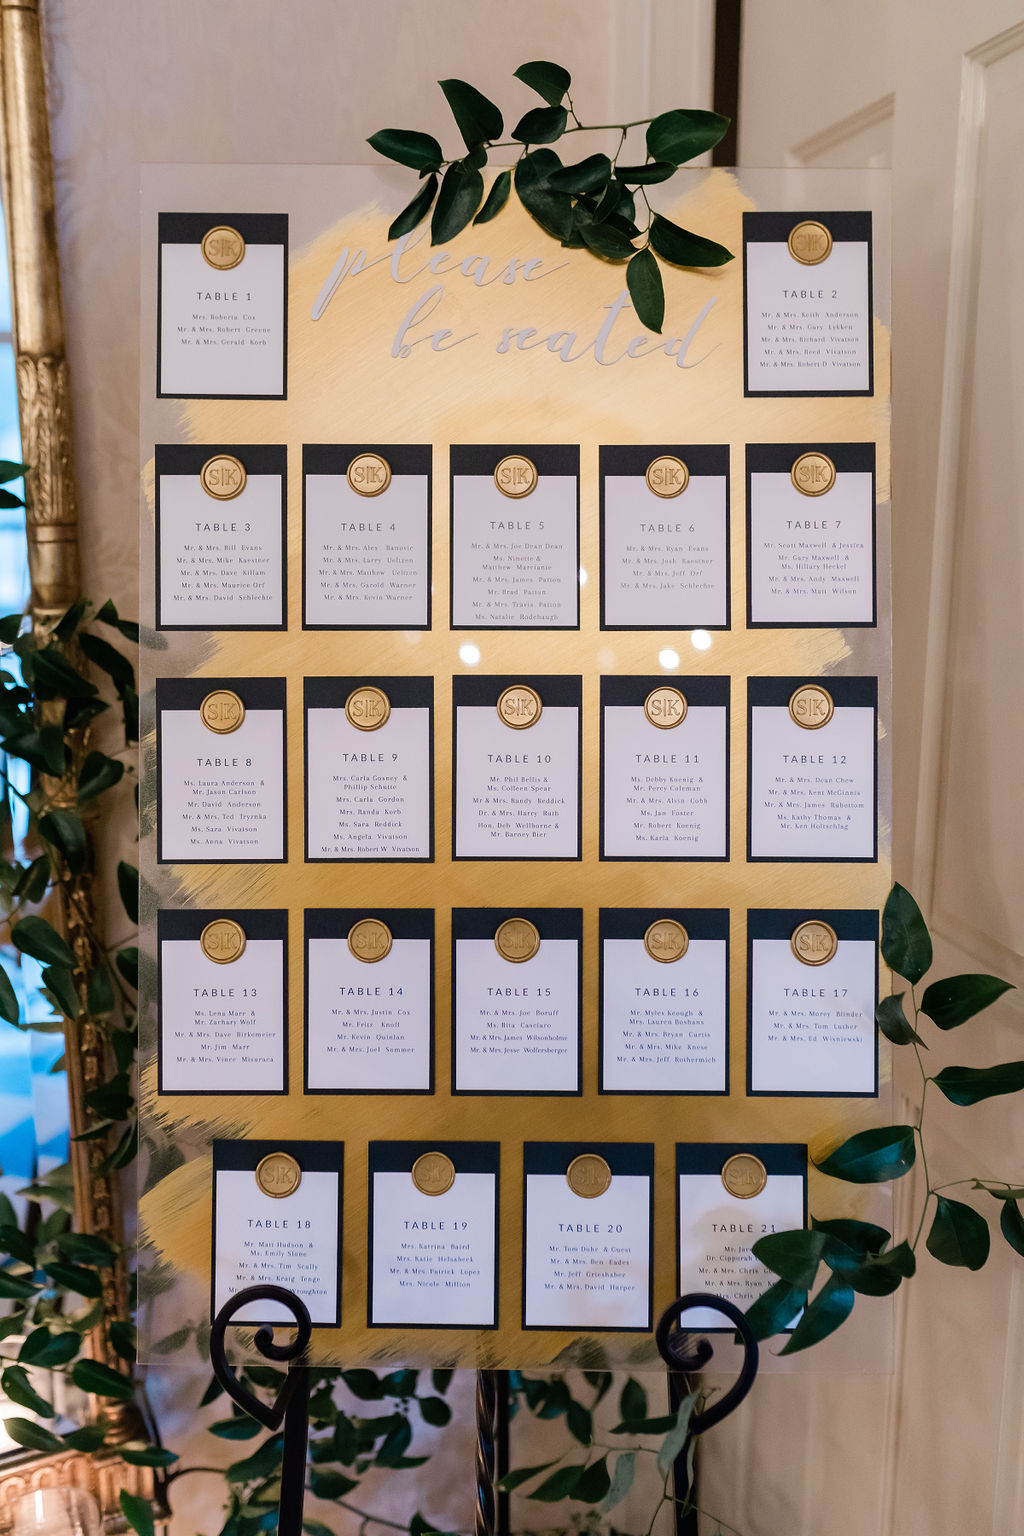 please
be seated
S|K
TABLE 1
Mrs. Roberta Cox
Mr. & Mrs. Robert Greene
Mr. & Mrs. Gerald Korb
S|K
TABLE 2
Mr. & Mrs. Keith Anderson
Mr. & Mrs. Gary Lykken
Mr. & Mrs. Richard Vivatson
Mr. & Mrs. Reed Vivatson
Mr. & Mrs. Robert D Vivatson
S|K
TABLE 3
Mr. & Mrs. Bill Evans
Mr. & Mrs. Mike Kaestner
Mr. & Mrs. Dave Killam
Mr. & Mrs. Maurice Orf
Mr. & Mrs. David Schlechte
S|K
TABLE 4
Mr. & Mrs. Alex Banovic
Mr. & Mrs. Larry Ueltzen
Mr. & Mrs. Matthew Ueltzen
Mr. & Mrs. Garold Warner
Mr. & Mrs. Kevin Warner
S|K
TABLE 5
Mr. & Mrs. Joe Dean Dean
Ms. Ninette &
Matthew Marcianie
Mr. & Mrs. James Patton
Mr. Brad Patton
Mr. & Mrs. Travis Patton
Ms. Natalie Rodebaugh
S|K
TABLE 6
Mr. & Mrs. Ryan Evans
Mr. & Mrs. Josh Kaestner
Mr. & Mrs. Jeff Orf
Mr. & Mrs. Jake Schlechte
S|K
TABLE 7
Mr. Scott Maxwell & Jessica
Mr. Gary Maxwell &
Ms. Hillary Heckel
Mr. & Mrs. Andy Maxwell
Mr. & Mrs. Matt Wilson
S|K
TABLE 8
Ms. Laura Anderson &
Mr. Jason Carlson
Mr. David Anderson
Mr. & Mrs. Ted Teyznka
Ms. Sara Vivatson
Ms. Anna Vivatson
S|K
TABLE 9
Mrs. Carla Gosney &
Phillip Schutte
Mrs. Carla Gordon
Mrs. Randa Korb
Ms. Sara Reddick
Ms. Angela Vivatson
Mr. & Mrs. Robert W Vivatson
S|K
TABLE 10
Mr. Phil Bellis &
Ms. Colleen Spear
Mr & Mrs. Randy Reddick
Dr. & Mrs. Harry Ruth
Hon. Deb Wellborne &
Mr. Barney Bier
S|K
TABLE 11
Ms. Debby Koenig &
Mr. Percy Coleman
Mr. & Mrs. Alvin Cobb
Ms. Jan Foster
Mr. Robert Koenig
Ms. Karla Koenig
S|K
TABLE 12
Mr. & Mrs. Dean Chew
Mr. & Mrs. Kent McGinnis
Mr. & Mrs. James Rubottom
Ms. Kathy Thomas &
Mr. Ken Holtschlag
S|K
TABLE 13
Ms. Lena Marr &
Mr. Zachary Wolf
Mr. & Mrs. Dave Birkemeier
Mr. Jim Marr
Mr. & Mrs. Vince Misuraca
S|K
TABLE 14
Mr. & Mrs. Justin Cox
Mr. Fritz Knoll
Mr. Kevin Quinlan
Mr. & Mrs. Joel Sommer
S|K
TABLE 15
Mr. & Mrs. Joe Boruff
Ms. Rita Casciaro
Mr. & Mrs. James Wilsonholme
Mr. & Mrs. Jesse Wolfersberger
S|K
TABLE 16
Mr. Myles Keough &
Mrs. Lauren Boshans
Mr. & Mrs. Bryan Curtis
Mr. & Mrs. Mike Knese
Mr. & Mrs. Jeff Rothermich
S|K
TABLE 17
Mr. & Mrs. Morey Blinder
Mr. & Mrs. Tom Luther
Mr. & Mrs. Ed Wisniewski
S|K
TABLE 18
Mr. Matt Hudson &
Ms. Emily Slone
Mr. & Mrs. Tim Scully
Mr. & Mrs. Kraig Tenge
S|K
TABLE 19
Mrs. Katrina Baird
Mrs. Katie Helsabeck
Mr. & Mrs. Patrick Lopez
Mrs. Nicole Million
S|K
TABLE 20
Mr. Tom Duhr & Guest
Mr. & Mrs. Ben Eades
Mr. Jeff Grieshaber
Mr. & Mrs. David Harper
S|K
TABLE 21
Mr.
Dr. Cipporah
Mr. & Mrs. Chris
Mr. & Mrs. Ryan
Mrs. Chris